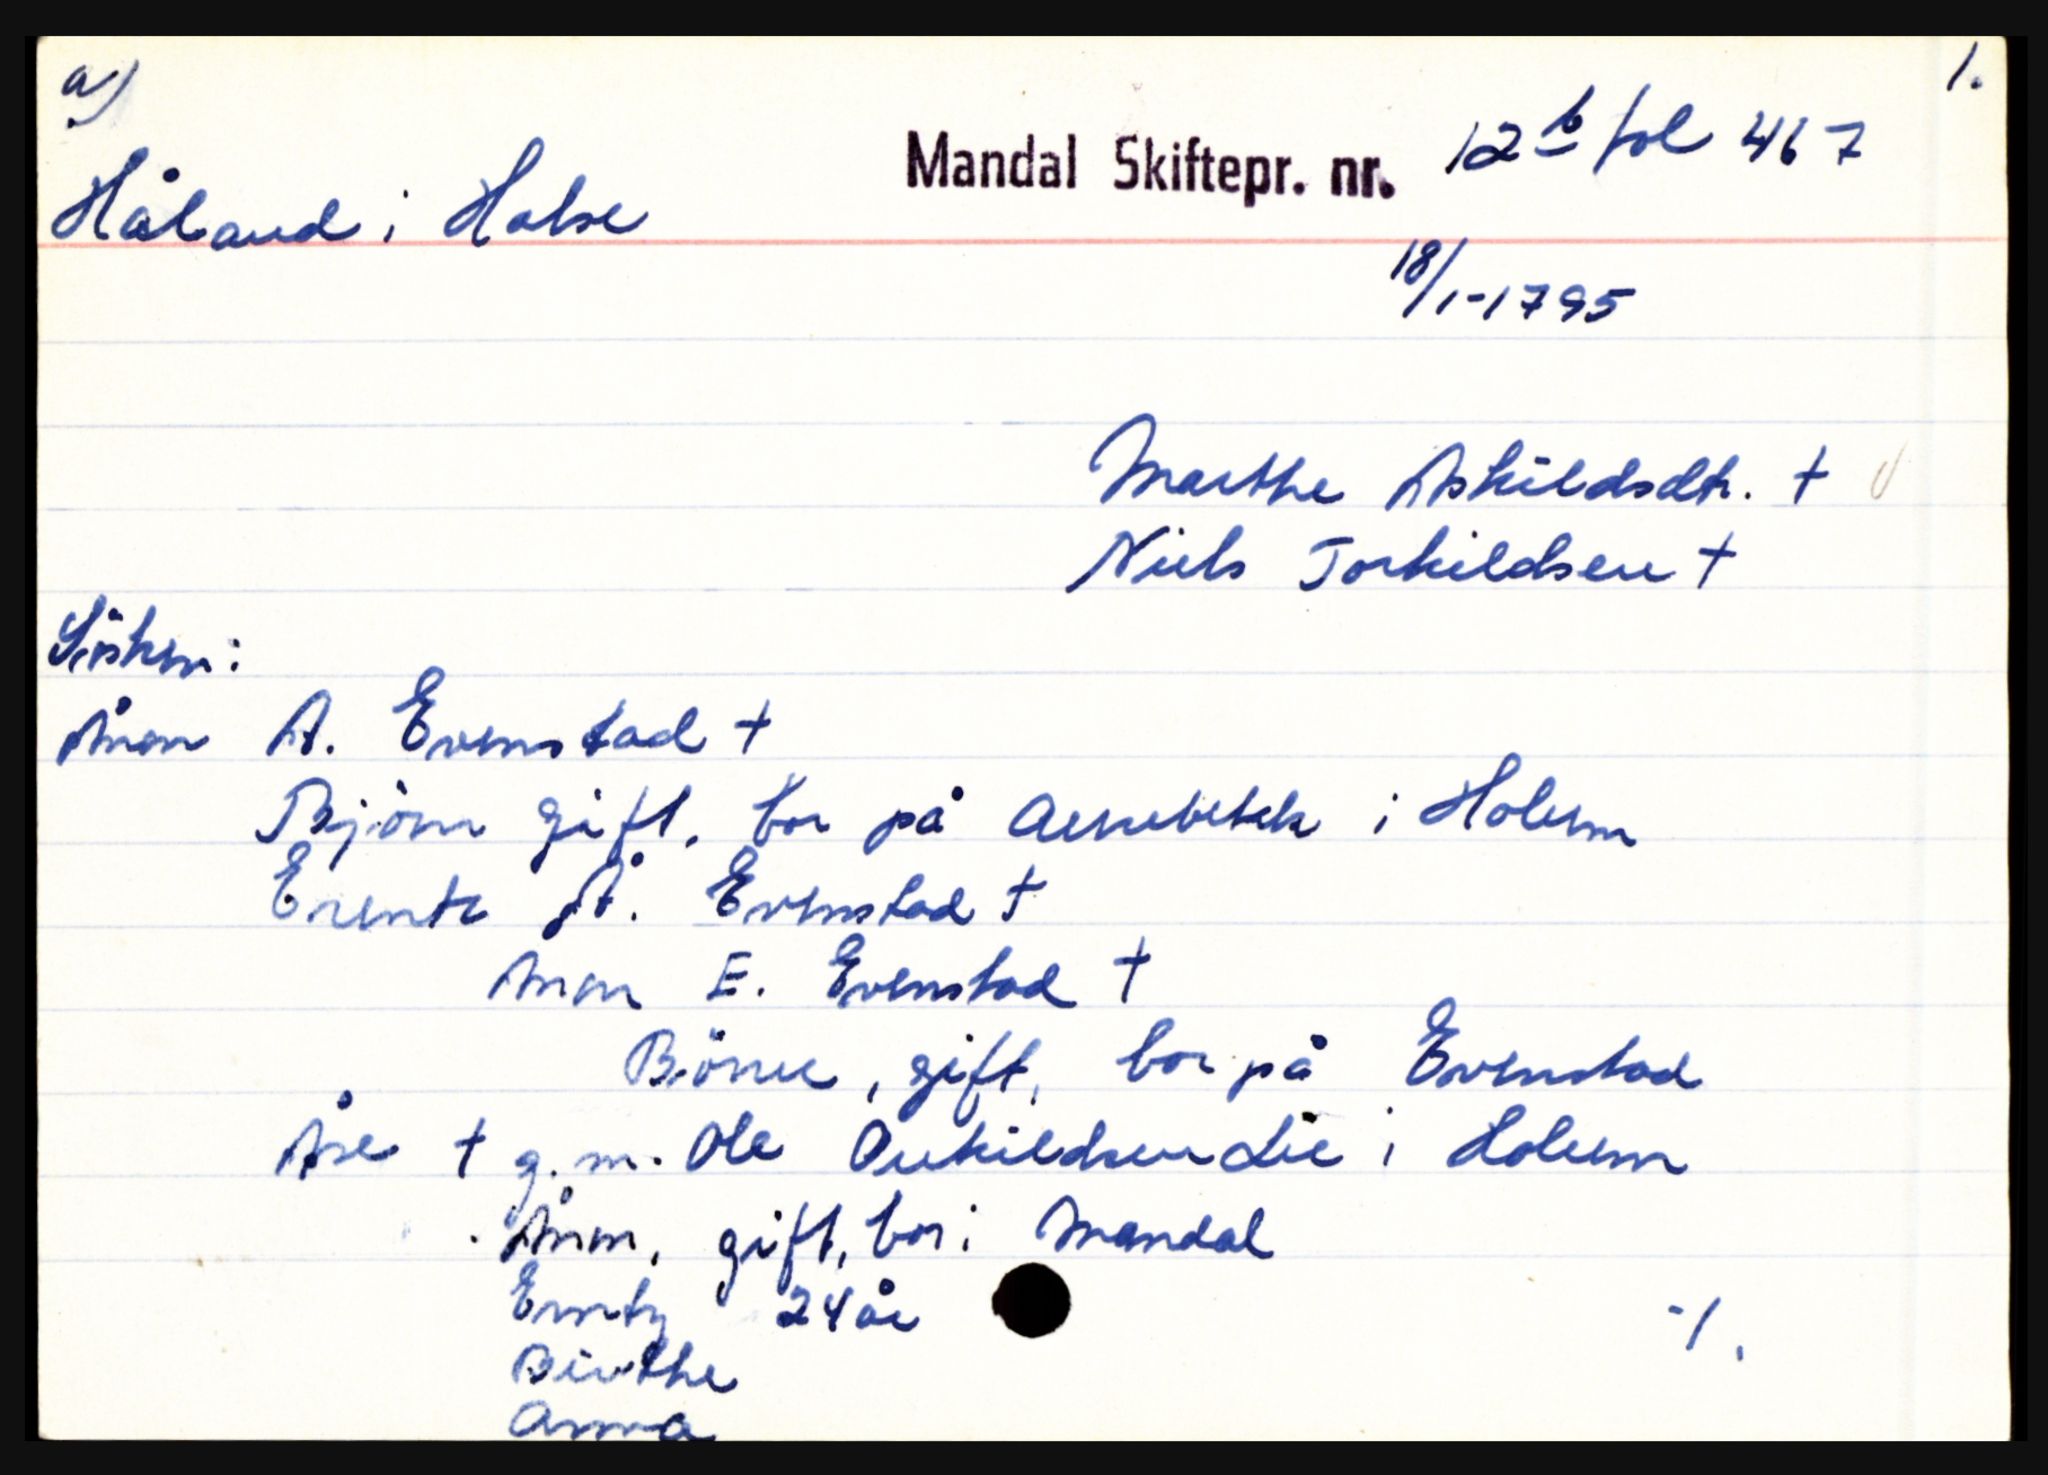 a)
1.
Mandal Skiftepr. nr. 12 b fol 467
Håland i Halse
18/1-1795
Marthe Askildsdtr. †
Niels Torkildsen †
Sösken:
Ånon A. Evenstad †
Björn gift, bor på i Holum
Erente Å. Evenstad †
Anon E. Evenstad †
Börne, gift, bor på Evenstad
Åse † g.m. Ole Lie i Holum
Ånon, gift, bor i Mandal
24 år
-/.
Birthe
Anna